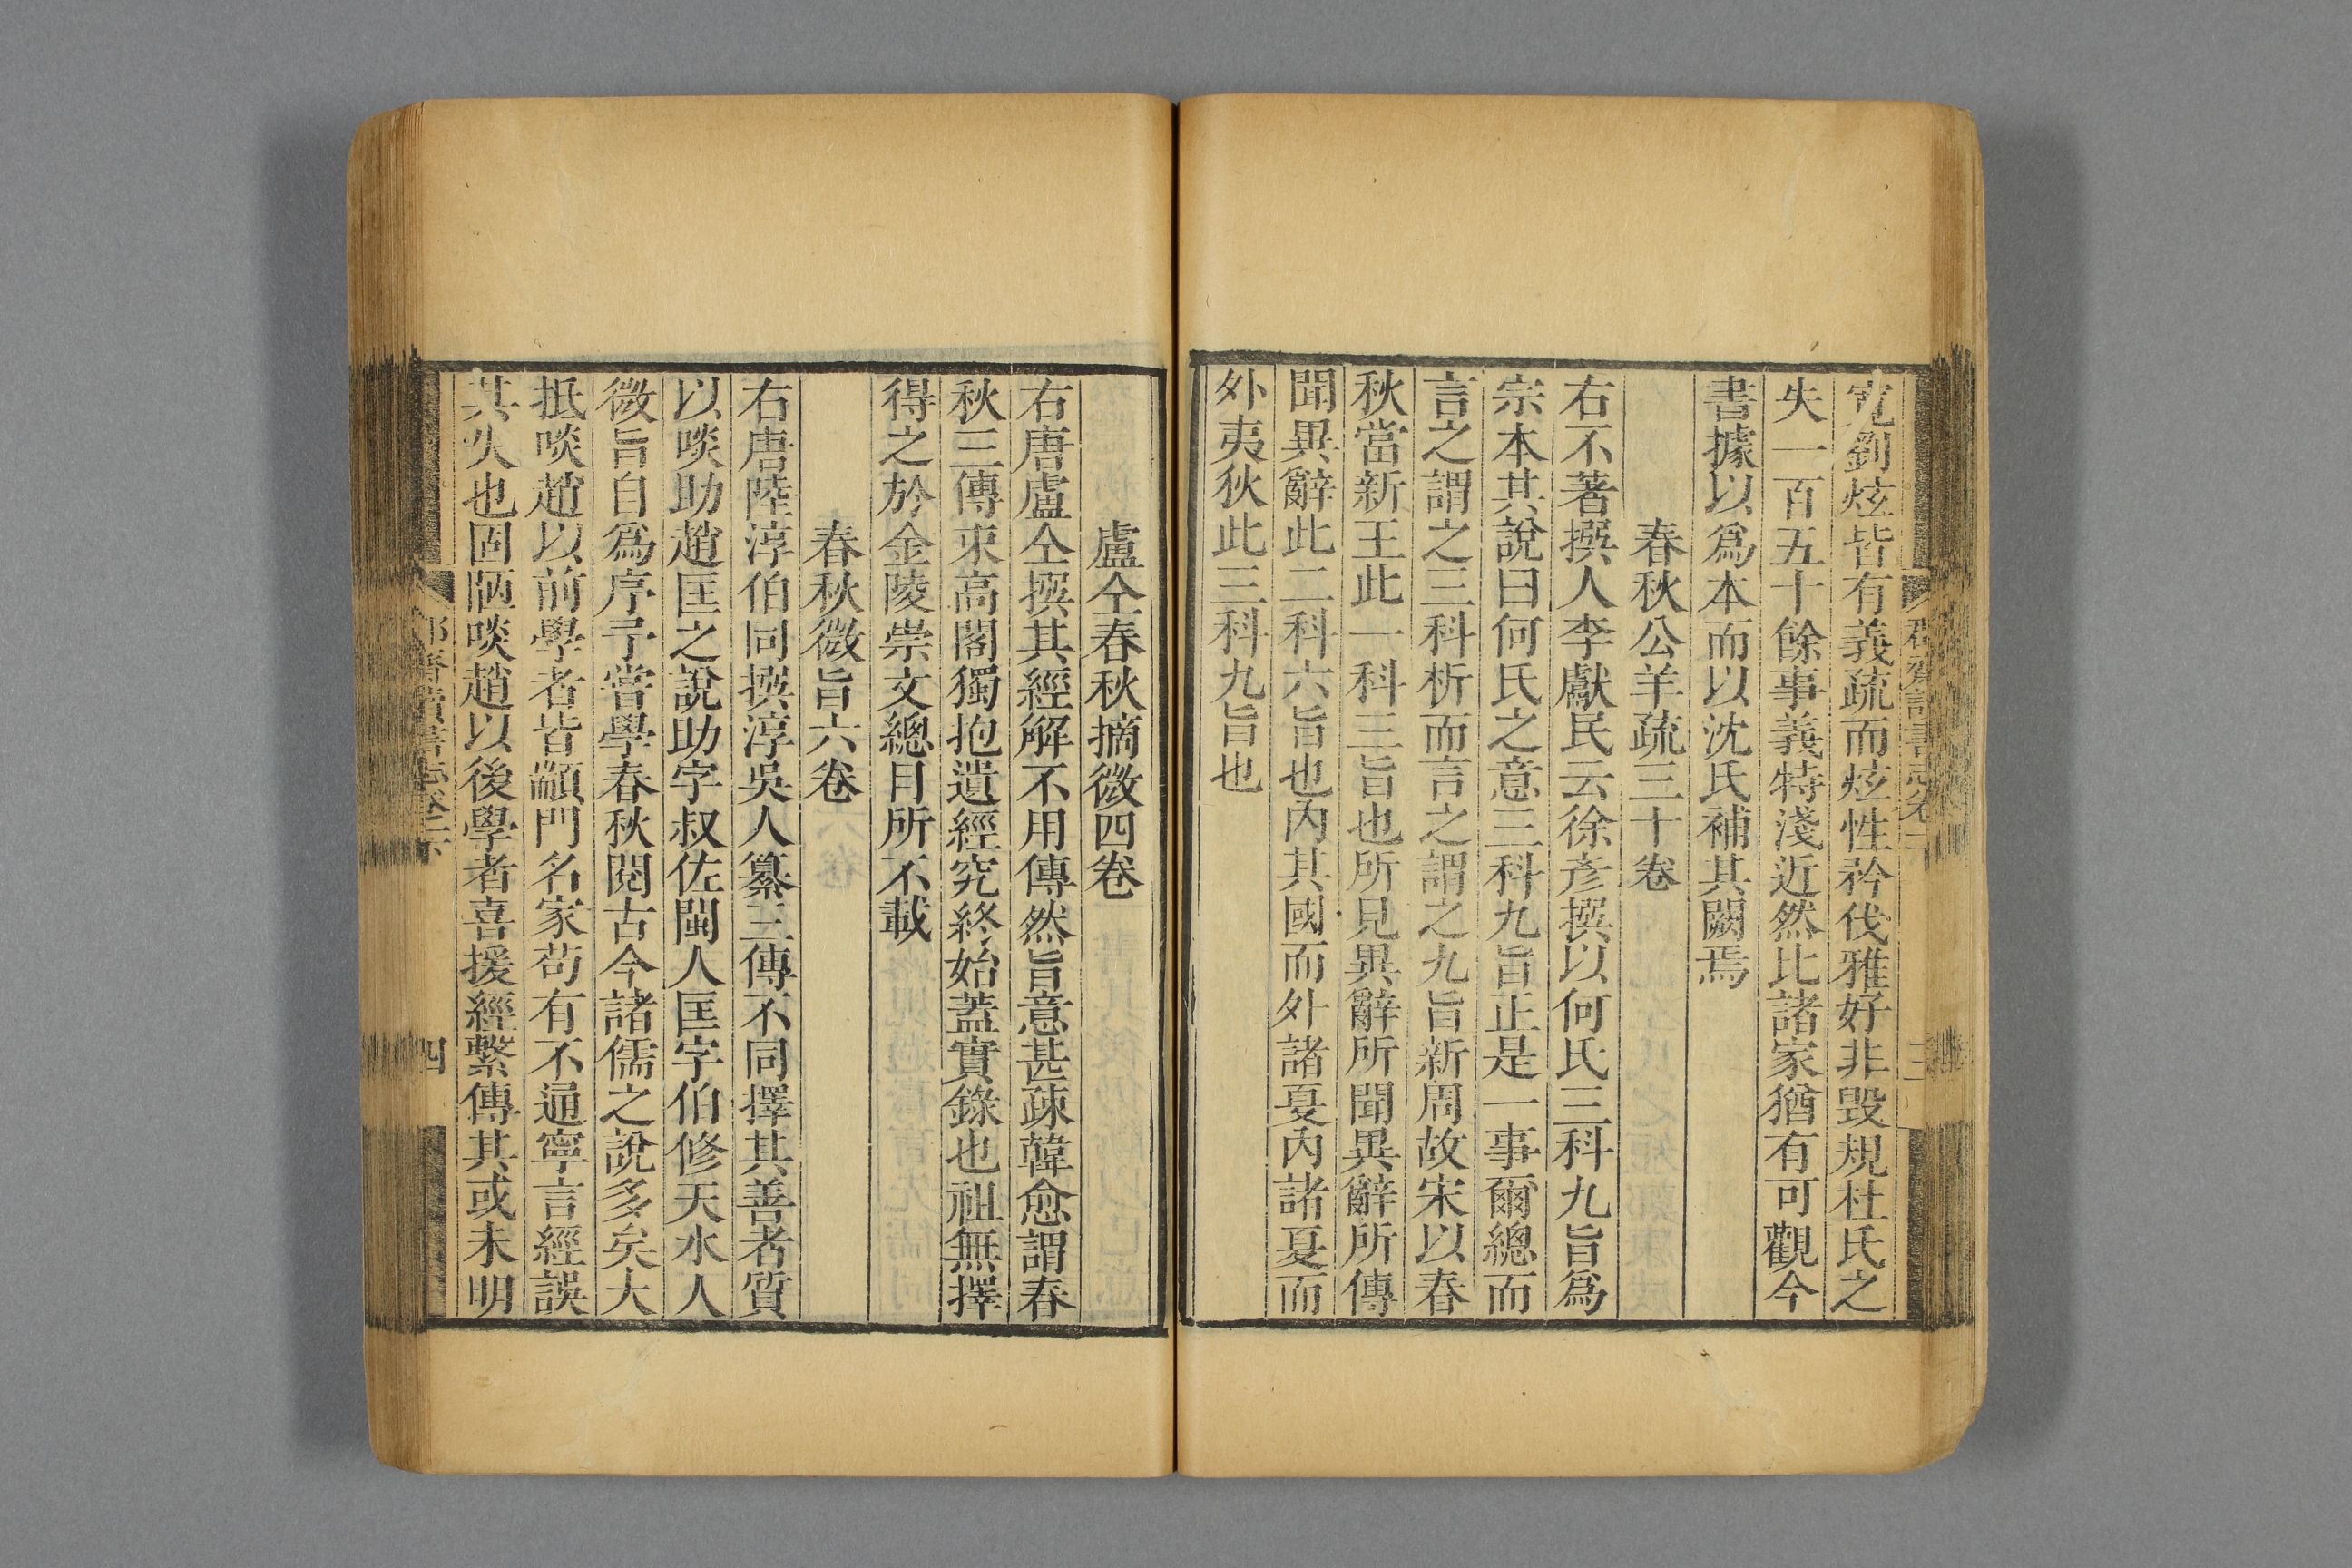 寬劉炫皆有義疏而炫性矜伐雅好非毀規杜氏之
失一百五十餘事義特淺近然比諸家猶有可觀今
書據以爲本而以沈氏補其闕焉
春秋公羊疏三十卷
右不著撰人李獻民云徐彥撰以何氏三科九旨爲
宗本其說曰何氏之意三科九旨正是一事爾總而
言之謂之三科析而言之謂之九旨新周故宋以春
秋當新王此一科三旨也所見異辭所聞異辭所傳
聞異辭此二科六旨也內其國而外諸夏內諸夏而
外夷狄此三科九旨也
盧仝春秋摘微四卷
右唐盧仝撰其經解不用傳然旨意甚疎韓愈謂春
秋三傳束高閣獨抱遺經究終始蓋實錄也祖無擇
得之於金陵崇文總目所不載
春秋微旨六卷
右唐陸淳伯同撰淳吳人纂三傳不同擇其善者質
以啖助趙匡之說助字叔佐閩人匡字伯修天水人
微旨自爲序予嘗學春秋閱古今諸儒之說多矣大
抵啖趙以前學者皆顓門名家苟有不通寧言經誤
其失也固陋啖趙以後學者喜援經繫傳其或未明
四